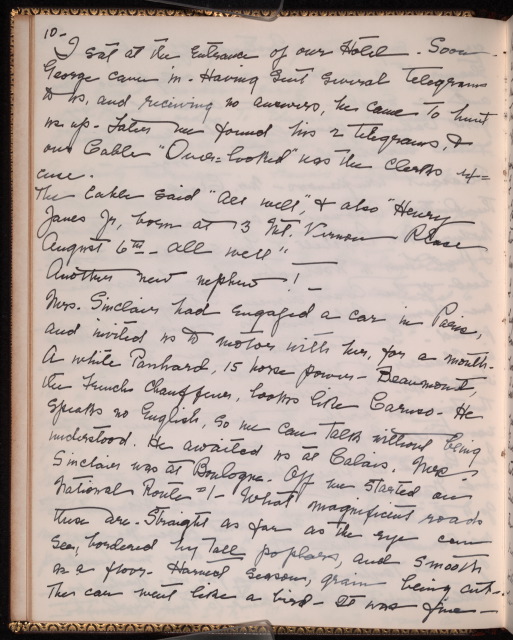 10-
I sat at the Entrance of our Hotel - Soon
George came in - Having sent several telegrams
to us, and receiving no answers, he came to hunt
us up. Later we found his 2 telegrams, &
our Cable "Over-looked" was the clerks ex=
cuse.
The Cable said "All well", & also "Henry
James Jr, born at 3 Mt. Vernon Place
August 6th - all well"
Another new nephew!
Mrs. Sinclair had engaged a car in Paris,
and invited us to motor with her, for a month.
A white Panhard, 15 horse power - Beaumont,
the French Chauffeur, looks like Caruso - He
speaks no English, so we can talk without being
understood. He awaited us at Calais, Mrs
Sinclair was at Boulogne. Off we started on
National Route #1 - What magnificent roads
these are - Straight as far as the eye can
see, bordered by tall poplars, and smooth
as a floor - Harvest season, grain being cut -
The car went like a bird - It was fine -